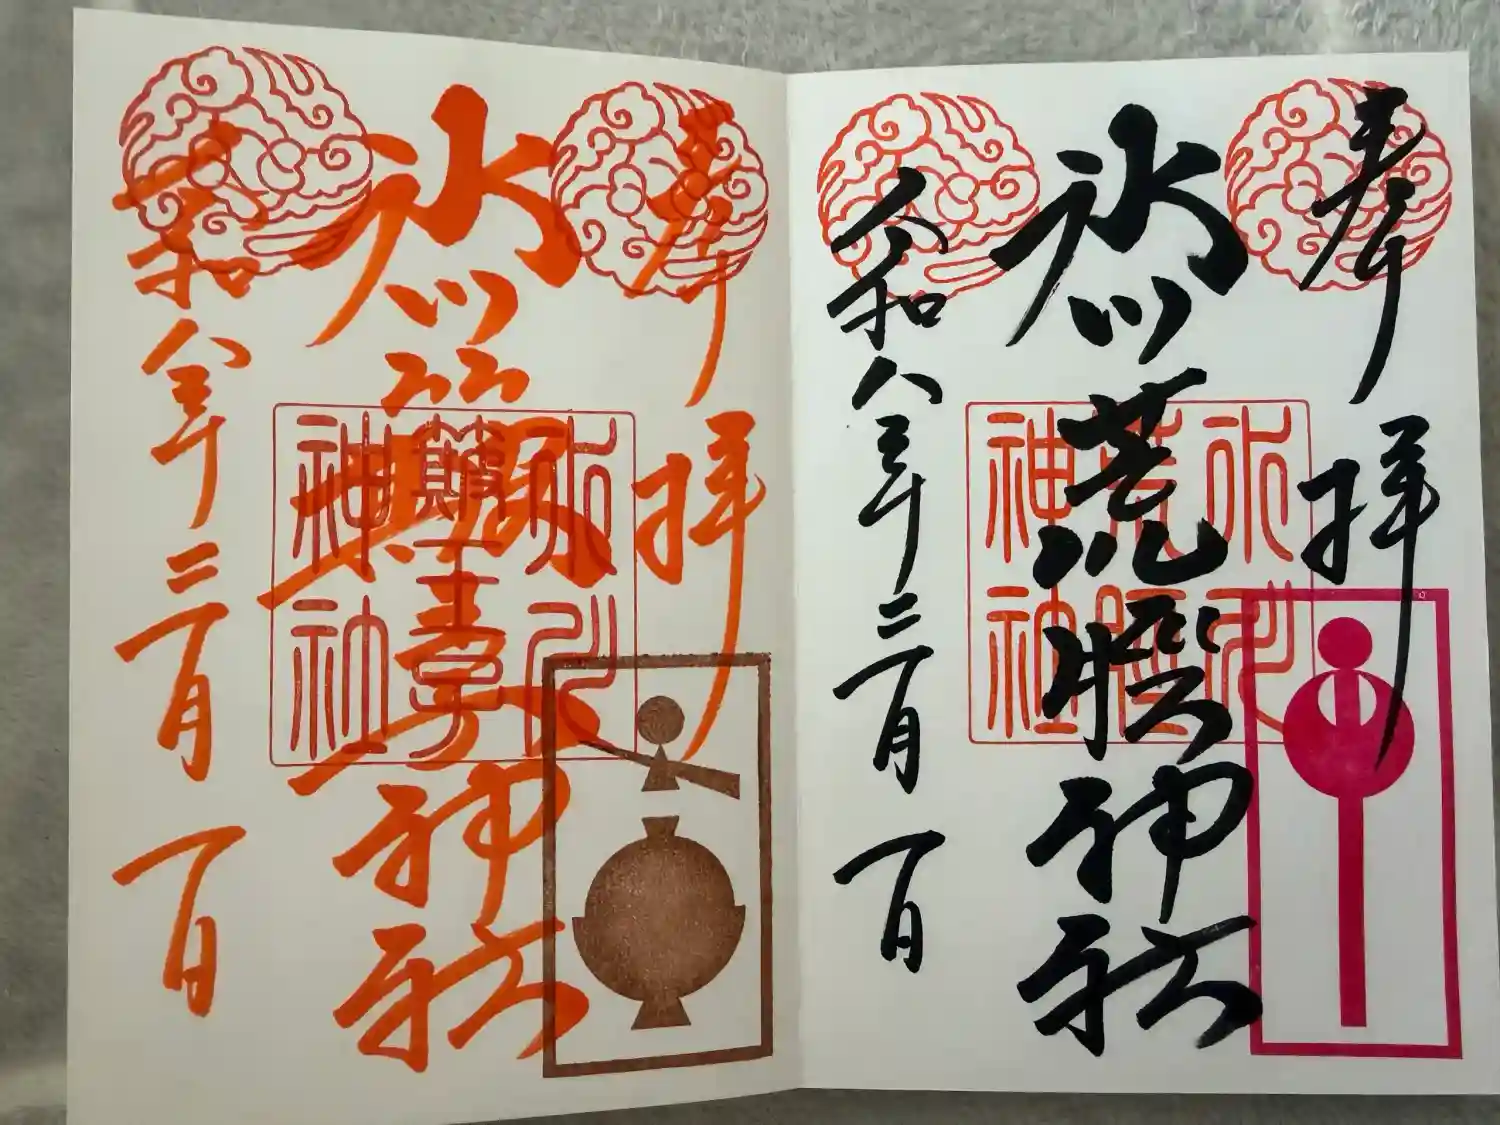 奉拝
氷川荒脛神社
令和八年二月一日
氷川
荒脛
神社
奉拝
氷川簸王子神社
令和八年二月一日
氷川
簸王子
神社